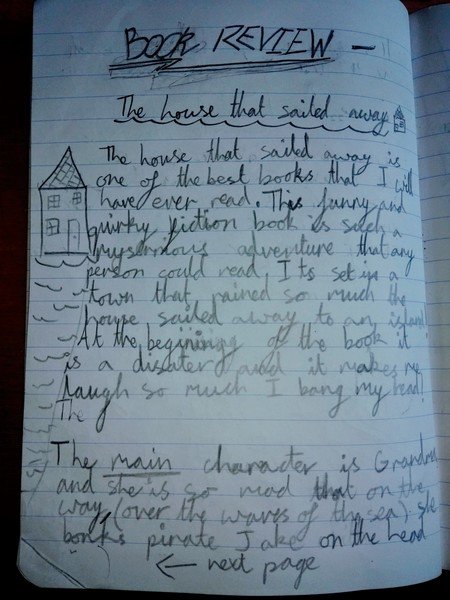 BOOK REVIEW -
The house that sailed away
The house that sailed away is
one of the best books that I will
have ever read. This funny and
quirky fiction book is such a
myserrious adventure that any
person could read. Its set in a
town that rained so much the
house sailed away to an island!
At the beginining of the book it
is a disater and it makes me
laugh so much I bang my head!
The
The main character is Grandma
and she is so mad that on the
way, (over the waves of the sea) she
bonks pirate Jake on the head
← next page